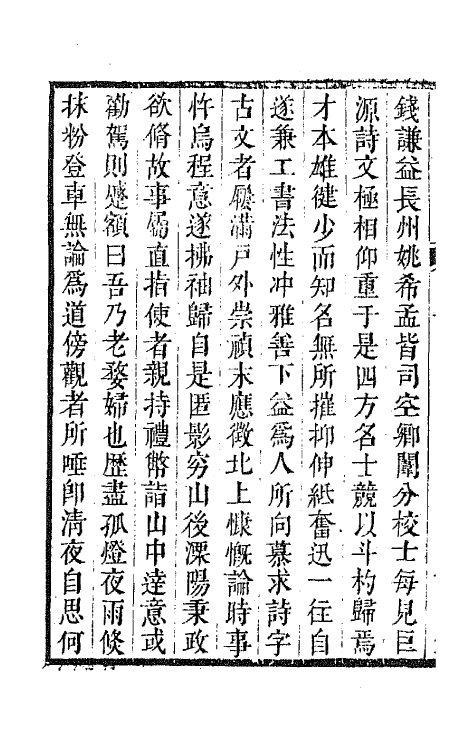 錢謙益長州姚希孟皆司空鄉闈分校士每見巨
源詩文極相仰重于是四方名士競以斗杓歸焉
才本雄徤少而知名無所摧抑伸紙奮迅一往自
遂兼工書法性冲雅善下益爲人所向慕求詩字
古文者屨滿戸外崇禎末應徵北上慷慨論時事
忤烏程意遂拂袖歸自是匿影穷山後溧陽秉政
欲脩故事屬直指使者親持禮幣詣山中達意或
勸駕則蹙額曰吾乃老嫠婦也歴盡孤燈夜雨倐
抹粉登車無論爲道傍觀者所唾卽淸夜自思何